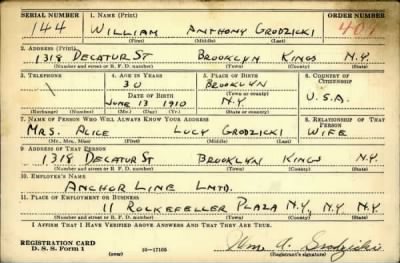 SERIAL NUMBER 1. NAME (Print) ORDER NUMBER
144 WILLIAM ANTHONY GRODZICKI 407
(First) (Middle) (Last)
2. ADDRESS (Print)
1318 DECATUR ST BROOKLYN KINGS N.Y.
(Number and street or R. F. D. number) (Town) (County) (State)
3. TELEPHONE 4. AGE IN YEARS 5. PLACE OF BIRTH 6. COUNTRY OF CITIZENSHIP
30 BROOKLYN
DATE OF BIRTH (Town or county)
JUNE 13 1910 N.Y. U.S.A.
(Exchange) (Number) (Mo.) (Day) (Yr.) (State or country)
7. NAME OF PERSON WHO WILL ALWAYS KNOW YOUR ADDRESS 8. RELATIONSHIP OF THAT PERSON
MRS. ALICE LUCY GRODZICKI WIFE
(Mr., Mrs., Miss) (First) (Middle) (Last)
9. ADDRESS OF THAT PERSON
1318 DECATUR ST BROOKLYN KINGS N.Y.
(Number and street or R. F. D. number) (Town) (County) (State)
10. EMPLOYER'S NAME
ANCHOR LINE LMTD.
11. PLACE OF EMPLOYMENT OR BUSINESS
11 ROCKEFELLER PLAZA N.Y, N.Y N.Y
(Number and street or R. F. D. number) (Town) (County) (State)
I AFFIRM THAT I HAVE VERIFIED ABOVE ANSWERS AND THAT THEY ARE TRUE.
REGISTRATION CARD
D. S. S. Form 1 (over) 16-17105 Wm A. Grodzicki
(Registrant's signature)